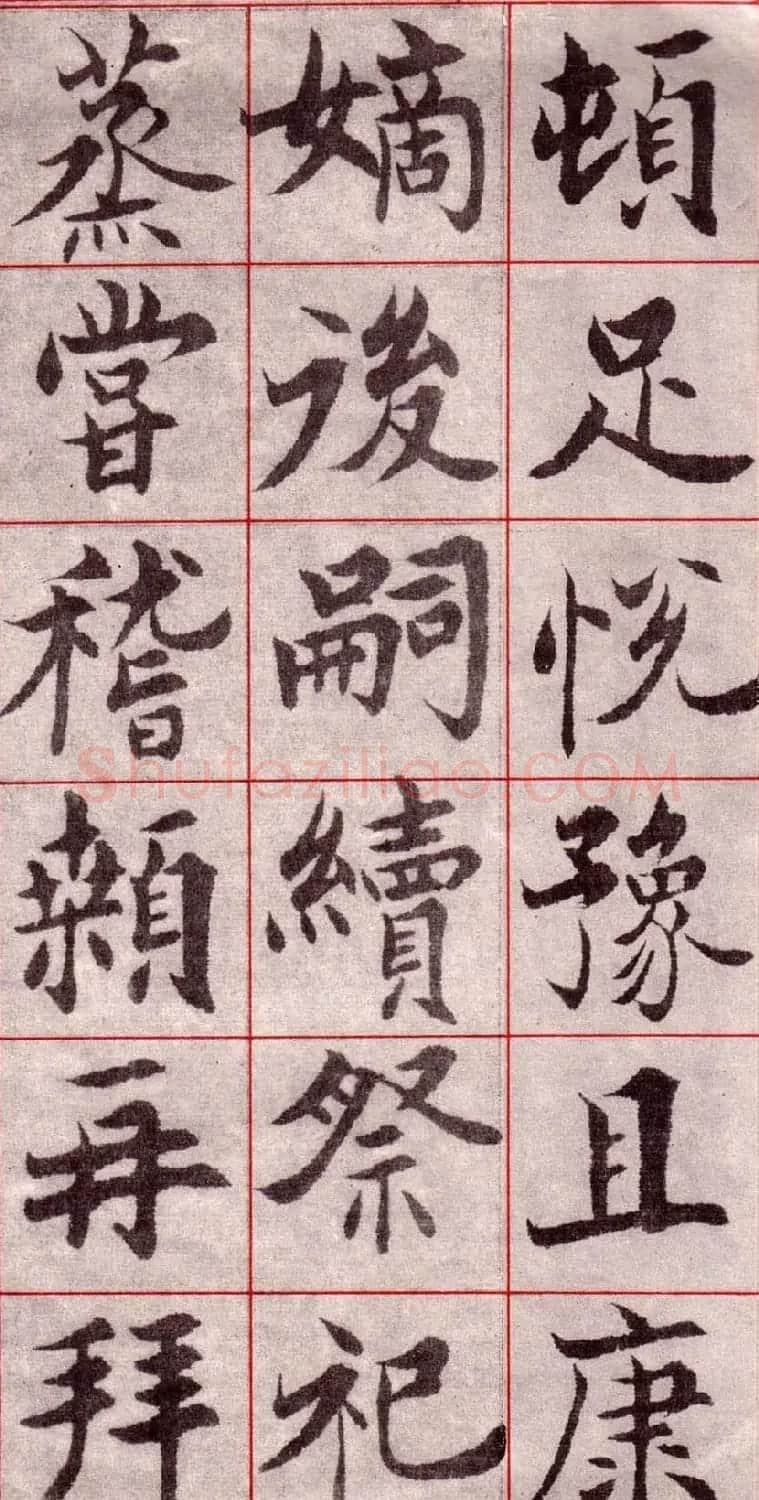 頓足悅豫且康
嫡後嗣續祭祀
蒸嘗稽顙再拜
Shufaziliao.COM